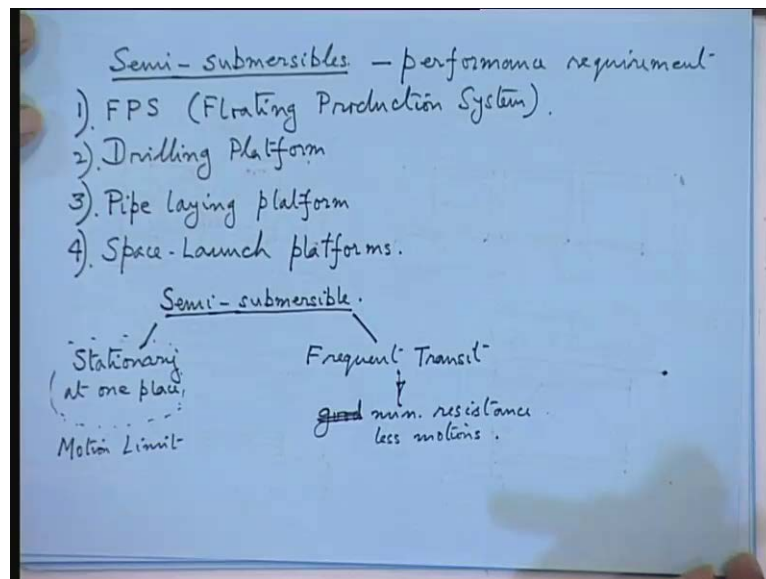 Semi-submersibles - performance requirement
1). FPS (Floating Production System).
2). Drilling Platform
3). Pipe laying platform
4). Space-Launch platforms.
Semi-submersible.
Stationary Frequent Transit
at one place,
min. resistance
less motions.
Motion Limit